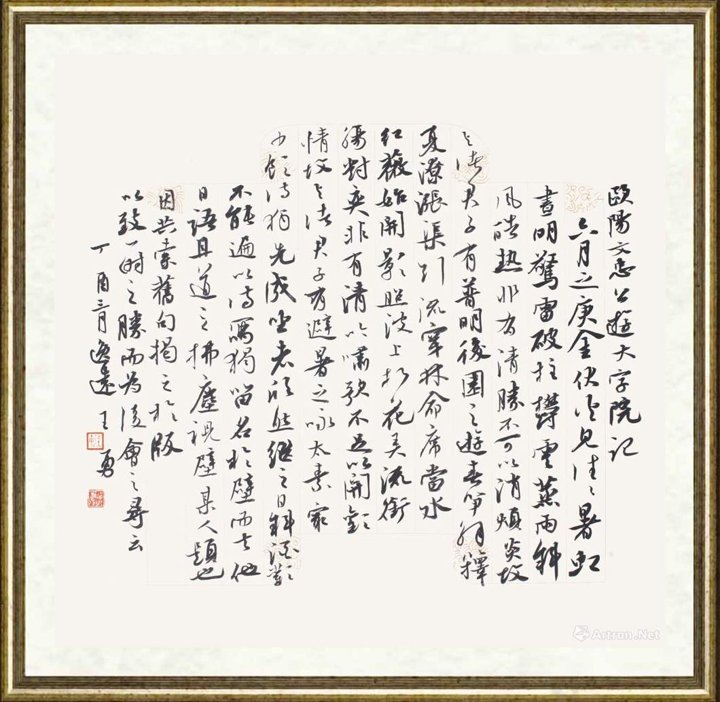 歐陽文忠公遊大字院記
六月之庚金伏火见往々暑虹
晝明驚雷破柱鬱雲蒸雨斜
風酷热非有清勝不可以消煩炎故
与诸君子有普明後園之遊春笋解籜
夏潦漲渠引流穿林命席當水
红薇始開影照波上折花弄流衔
觴對奕非有清吟嘯歌不足以開歡
情故与诸君子有避暑之咏太素最
少飲诗獨先成坐者欣然继之日斜酒歡
不能遍以诗寫獨留名於壁而去他
日語且道之拂塵視壁某人題也
因共索舊句揭之於版
以致一时之勝而为後會之尋云
丁酉三月逸遠王勇
Artron.Net